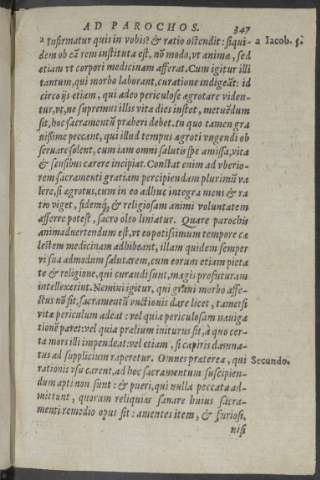 AD PAROCHOS. 347
ᵃ Infirmatur quis in vobis? & ratio ostendit: siqui- a Iacob. 5.
dem ob eā rem instituta est, nō modo, vt animæ, sed
etiam vt corpori medicinam afferat. Cum igitur illi
tantum, qui morbo laborant, curatione indigeāt: id
circo ijs etiam, qui adeo periculose ægrotare viden-
tur, vt, ne supremus illis vitæ dies instet, metuēdum
sit, hoc sacramentū præberi debet. in quo tamen gra
uissime peccant, qui illud tempus ægroti vngendi ob
seruare solent, cum iam omni salutis spe amissa, vita
& sensibus carere incipiat. Constat enim ad vberio-
rem sacramenti gratiam percipiendam plurimū va
lere, si ægrotus, cum in eo adhuc integra mens & ra
tio viget, fidemq́;, & religiosam animi voluntatem
afferre potest, sacro oleo liniatur. Quare parochis
animaduertendum est, vt eo potissimum tempore cæ
lestem medicinam adhibeant, illam quidem semper
vi sua admodum salutarem, cum eorum etiam pieta
te & religione, qui curandi sunt, magis profuturam
intellexerint. Nemini igitur, qui graui morbo affe-
ctus nō sit, sacramentū vnctionis dare licet, tametsi
vitæ periculum adeat: vel quia periculosam nauiga
tionē paret: vel quia prælium initurus sit, à quo cer-
ta mors illi impendeat: vel etiam, si capitis damna-
tus ad supplicium raperetur. Omnes præterea, qui Secundo.
rationis vsu carent, ad hoc sacramentum suscipien-
dum apti non sunt: & pueri, qui nulla peccata ad-
mittunt, quorum reliquias sanare huius sacra-
menti remedio opus sit: amentes item, & furiosi,
nisi